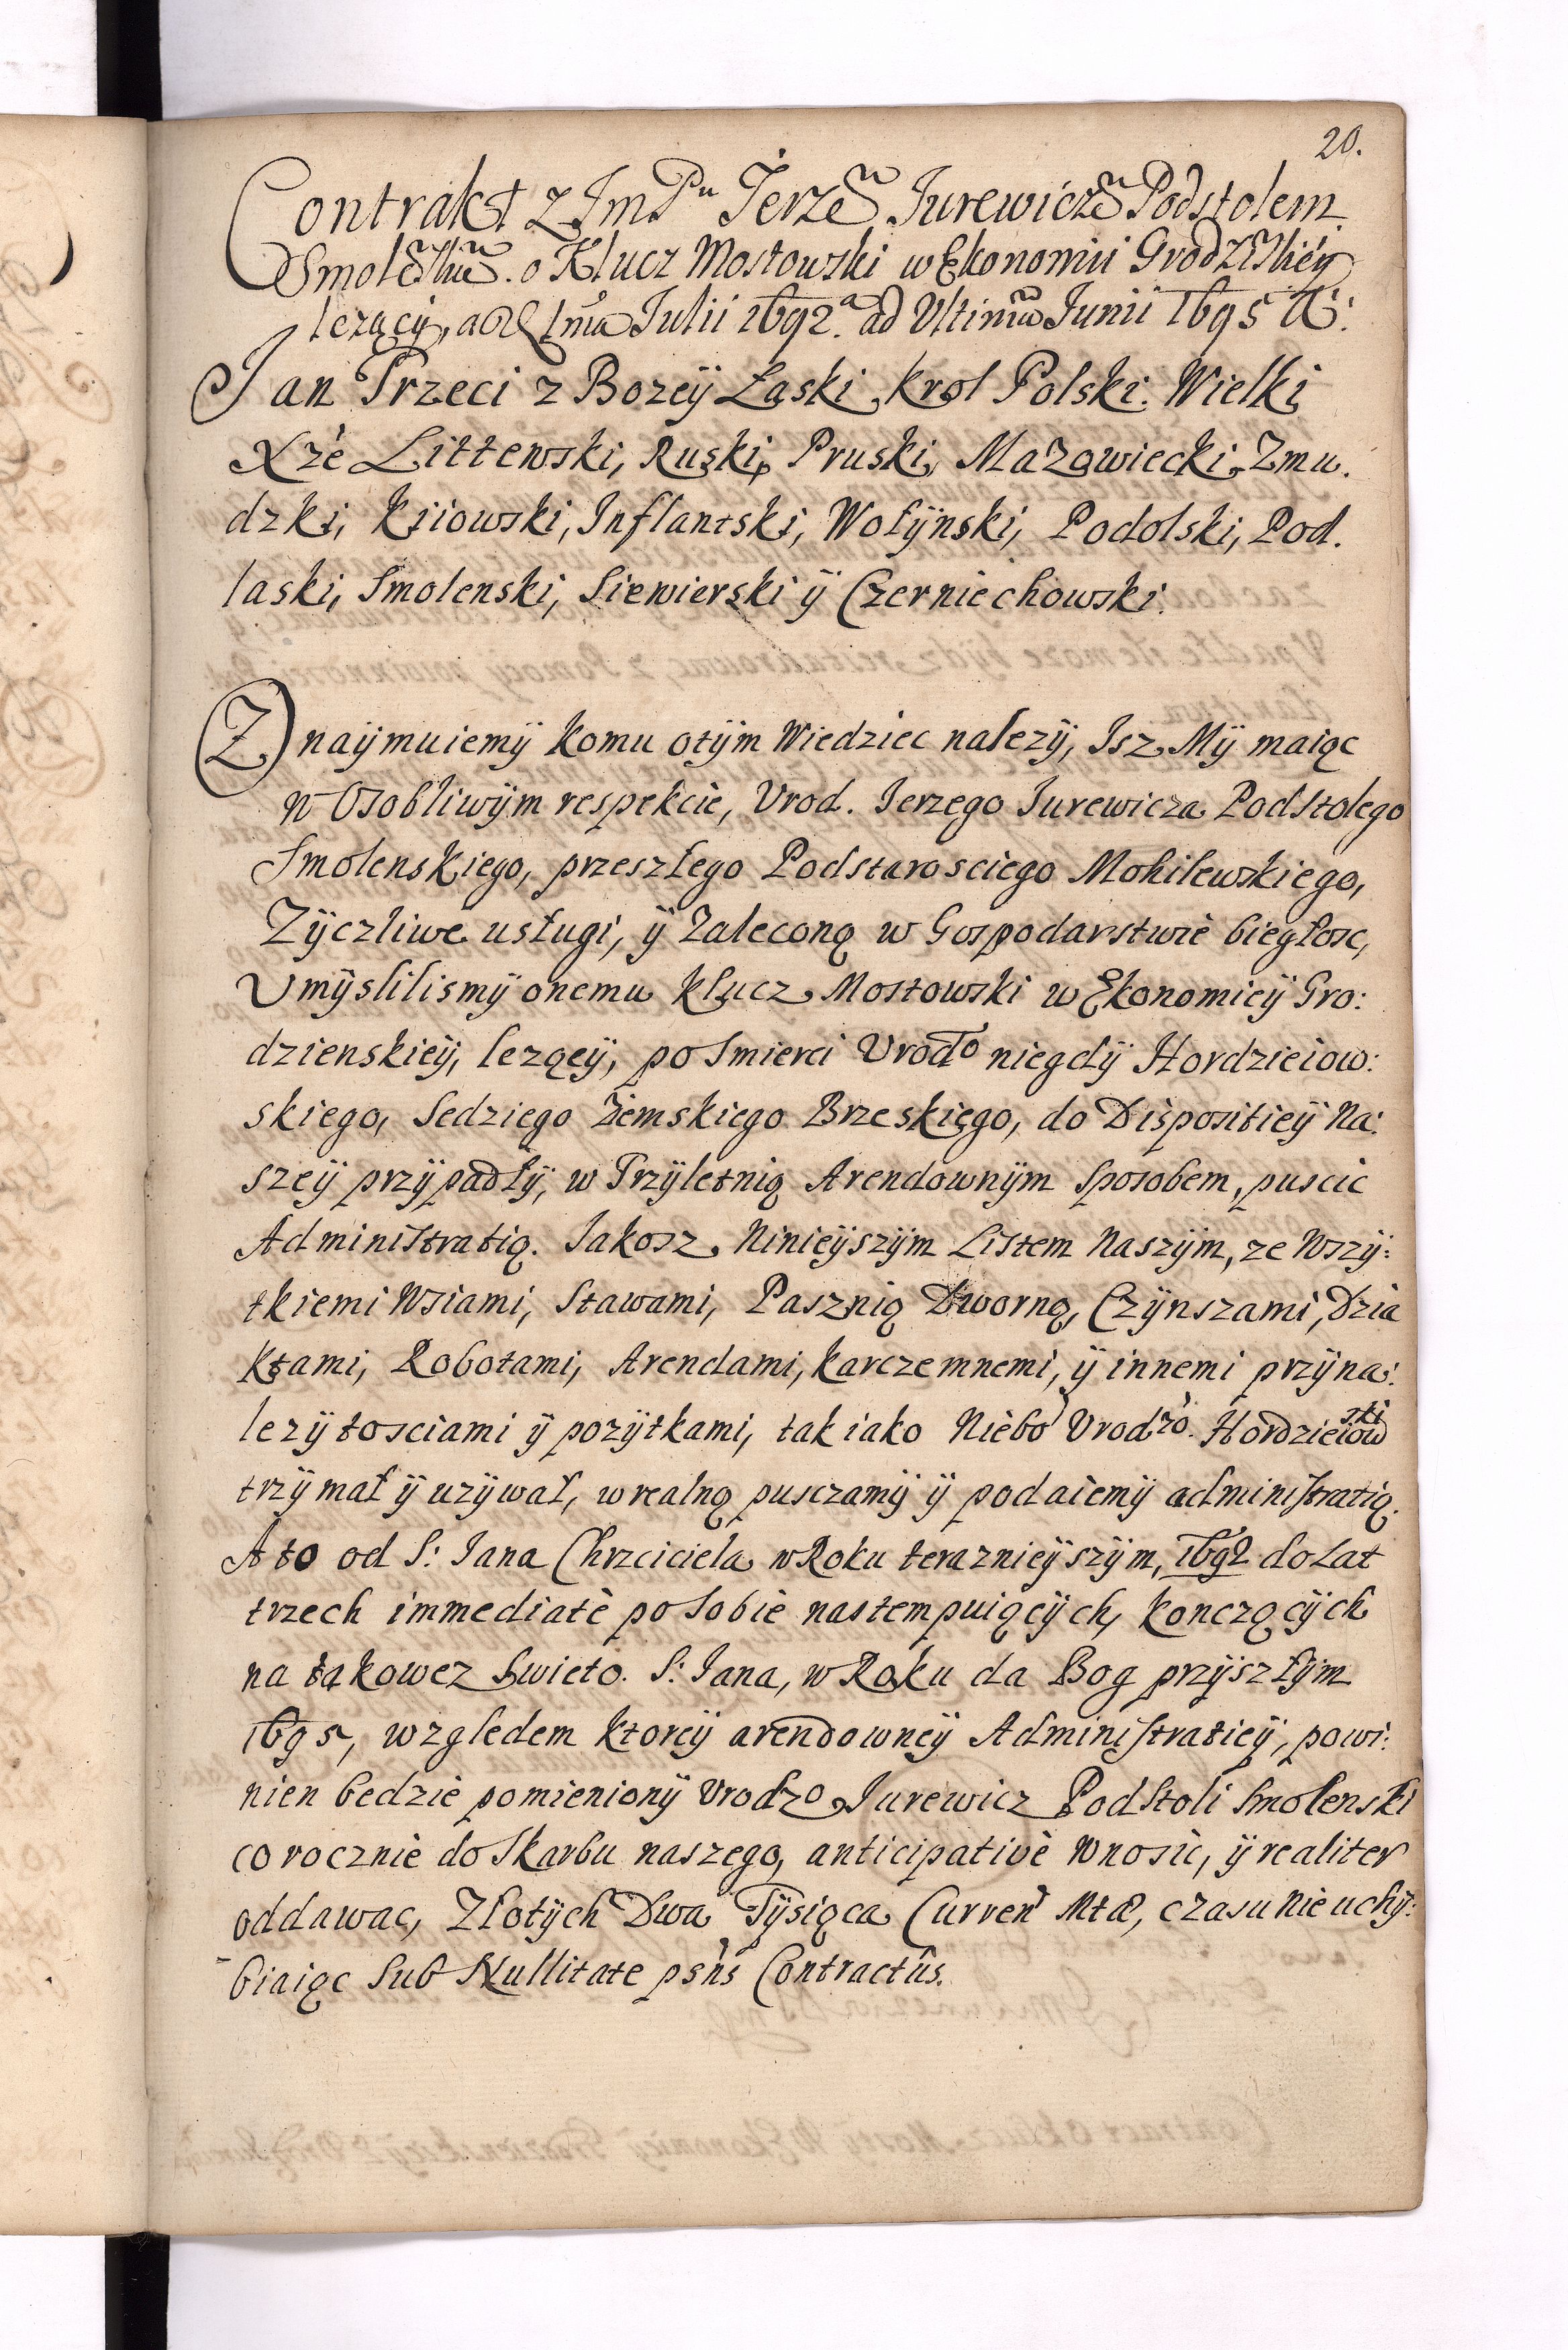 20.
Contrakt z JmPn Jerzem Jurewiczem Podstolem
Smolēskim. o Klucz Mostowski w Ekonomii Grodzēskiey
lezący, a 1ma Julii 1692.a ad Ultimam Junii 1695 A:
Jan Trzeci z Bozeÿ Łaski, krol Polski. Wielki
Xże Littewski, Ruski, Pruski, Mazowiecki Zmu.
dzki, Kiiowski, Inflantski, Wołÿnski, Podolski, Pod.
laski, Smolenski, Siewierski ÿ Czerniechowski.
Znaÿmuiemÿ komu otÿm Wiedziec nalezÿ, Isz Mÿ maiąc
w Osobliwÿm respekcie, Urod. Jerzego Jurewicza Podstolego
Smolenskiego, przeszłego Podstarosciego Mohilewskiego,
Zÿczliwe usługi, ÿ Zaleconą w Gospodarstwie biegłosc,
Umÿslilismÿ onemu klucz Mostowski w Ekonomieÿ Gro:
dzienskieÿ, lezącÿ, po Smierci Urodo niegdÿ Hordzieiow:
skiego, Sedziego Ziemskiego Brzeskiego, do Dispositieÿ Na:
szeÿ przÿpadłÿ, w Trzÿletnią Arendownÿm Sposobem, puscic
Administratią. Jakosz Ninieÿszÿm Listem Naszÿm, ze Wszÿ:
tkiemi Wsiami, Stawami, Pasznią Dworną, Czÿnszami, Dzia
kłami, Robotami, Arendami, karczemnemi, ÿ innemi przÿna:
lezÿtosciami ÿ pozÿtkami, tak iako Niebo Urodzo. Hordzieiowski
trzÿmał ÿ uzÿwał, w realną pusczamÿ ÿ podaiemÿ administratią.
A to od S: Jana Chrzciciela w Roku teraznieÿszÿm, 1692 do Lat
trzech immediatè po Sobie nastempuiącÿch, konczącÿch
na takowez Swieto. S: Jana, w Roku da Bog przÿszłÿm
1695, wzgledem ktoreÿ arendowneÿ Administratieÿ, powi:
nien bedzie pomienionÿ Urodzo Jurewicz Podstoli Smolenski
co rocznie do Skarbu naszego, anticipativè wnosic, ÿ realiter
oddawac, Złotÿch Dwa Tÿsiąca Curren Mtæ, czasu nie uchÿ:
biaiąc Sub Nullitate psñs Contractûs.